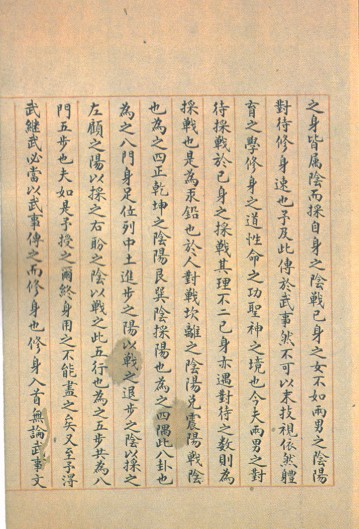 之身皆屬陰而採自身之陰戰己身之女不如兩男之陰陽
對待修身速也予及此傳於武事然不可以末技視依然體
育之學修身之道性命之功聖神之境也今夫兩男之對
待採戰於己身之採戰其理不二己身亦遇對待之數則為
採戰也是為汞鉛也於人對戰坎離之陰陽兌震陽戰陰
也為之四正乾坤之陰陽艮巽陰採陽也為之四隅此八卦也
為之八門身足位列中土進步之陽以戰之退步之陰以採之
左顧之陽以採之右盼之陰以戰之此五行也為之五步共為八
門五步也夫如是予授之爾終身用之不能盡之矣又至予得
武繼武必當以武事傳之而修身也修身入首無論武事文